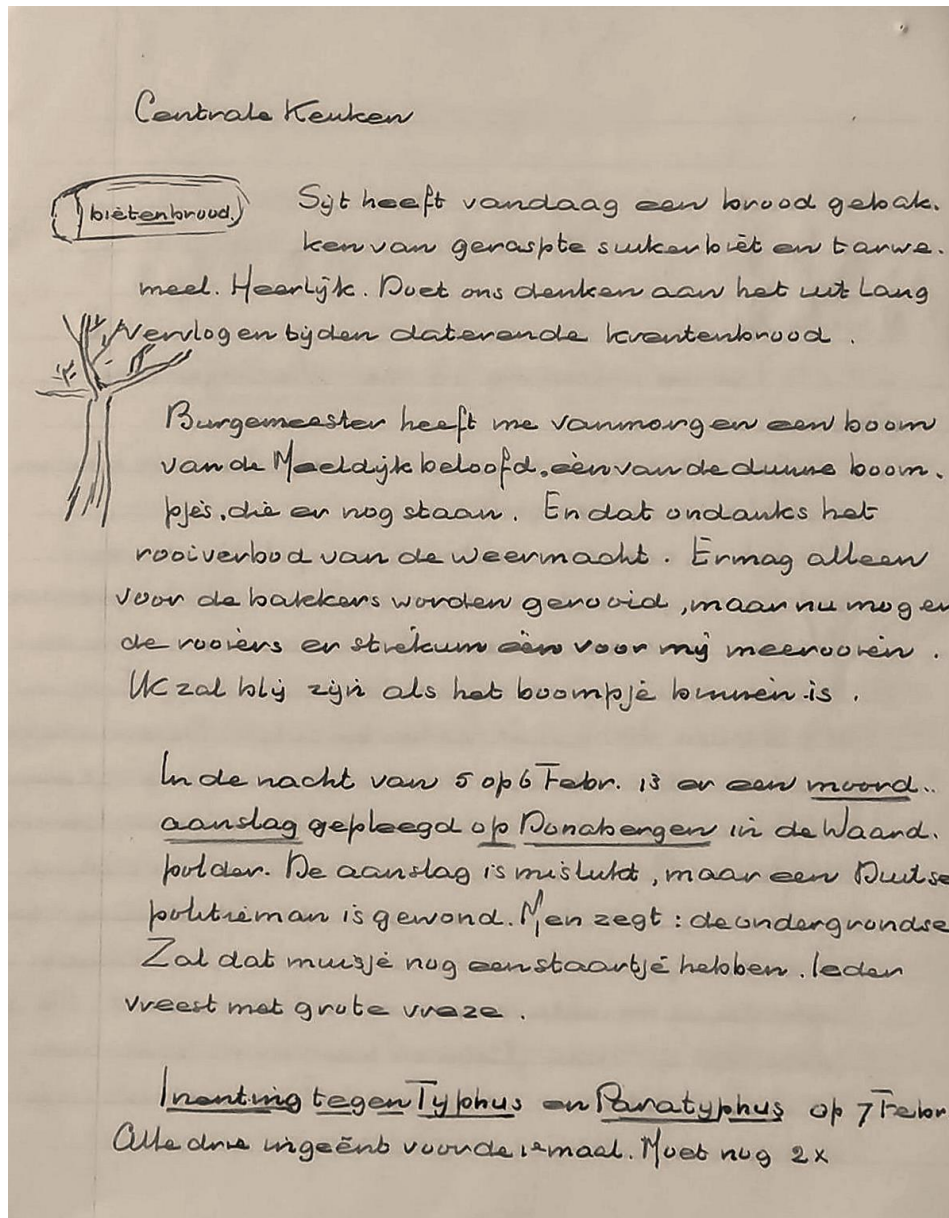 Centrale Keuken
bietenbrood.
Sijt heeft vandaag een brood gebak-
ken van geraspte suikerbiet en tarwe-
meel. Heerlijk. Doet ons denken aan het uit lang
vervlogen tijden daterende krentenbrood.
Burgemeester heeft me vanmorgen een boom
van de Meeldijk beloofd, één van de dunne boom-
pjes, die er nog staan. En dat ondanks het
rooiverbod van de weermacht. Er mag alleen
voor de bakkers worden gerooid, maar nu mogen
de rooiers er stiekum één voor mij meerooien.
Ik zal blij zijn als het boompje binnen is.
In de nacht van 5 op 6 Febr. is er een moord-
aanslag gepleegd op Donabergen in de Waard-
polder. De aanslag is mislukt, maar een Duitse
politieman is gewond. Men zegt: de ondergrondse
Zal dat muisje nog een staartje hebben. Ieder
vreest met grote vreze.
Inenting tegen Typhus en Paratyphus op 7 Febr
Alle drie ingeënt voor de 1e maal. Moet nog 2x